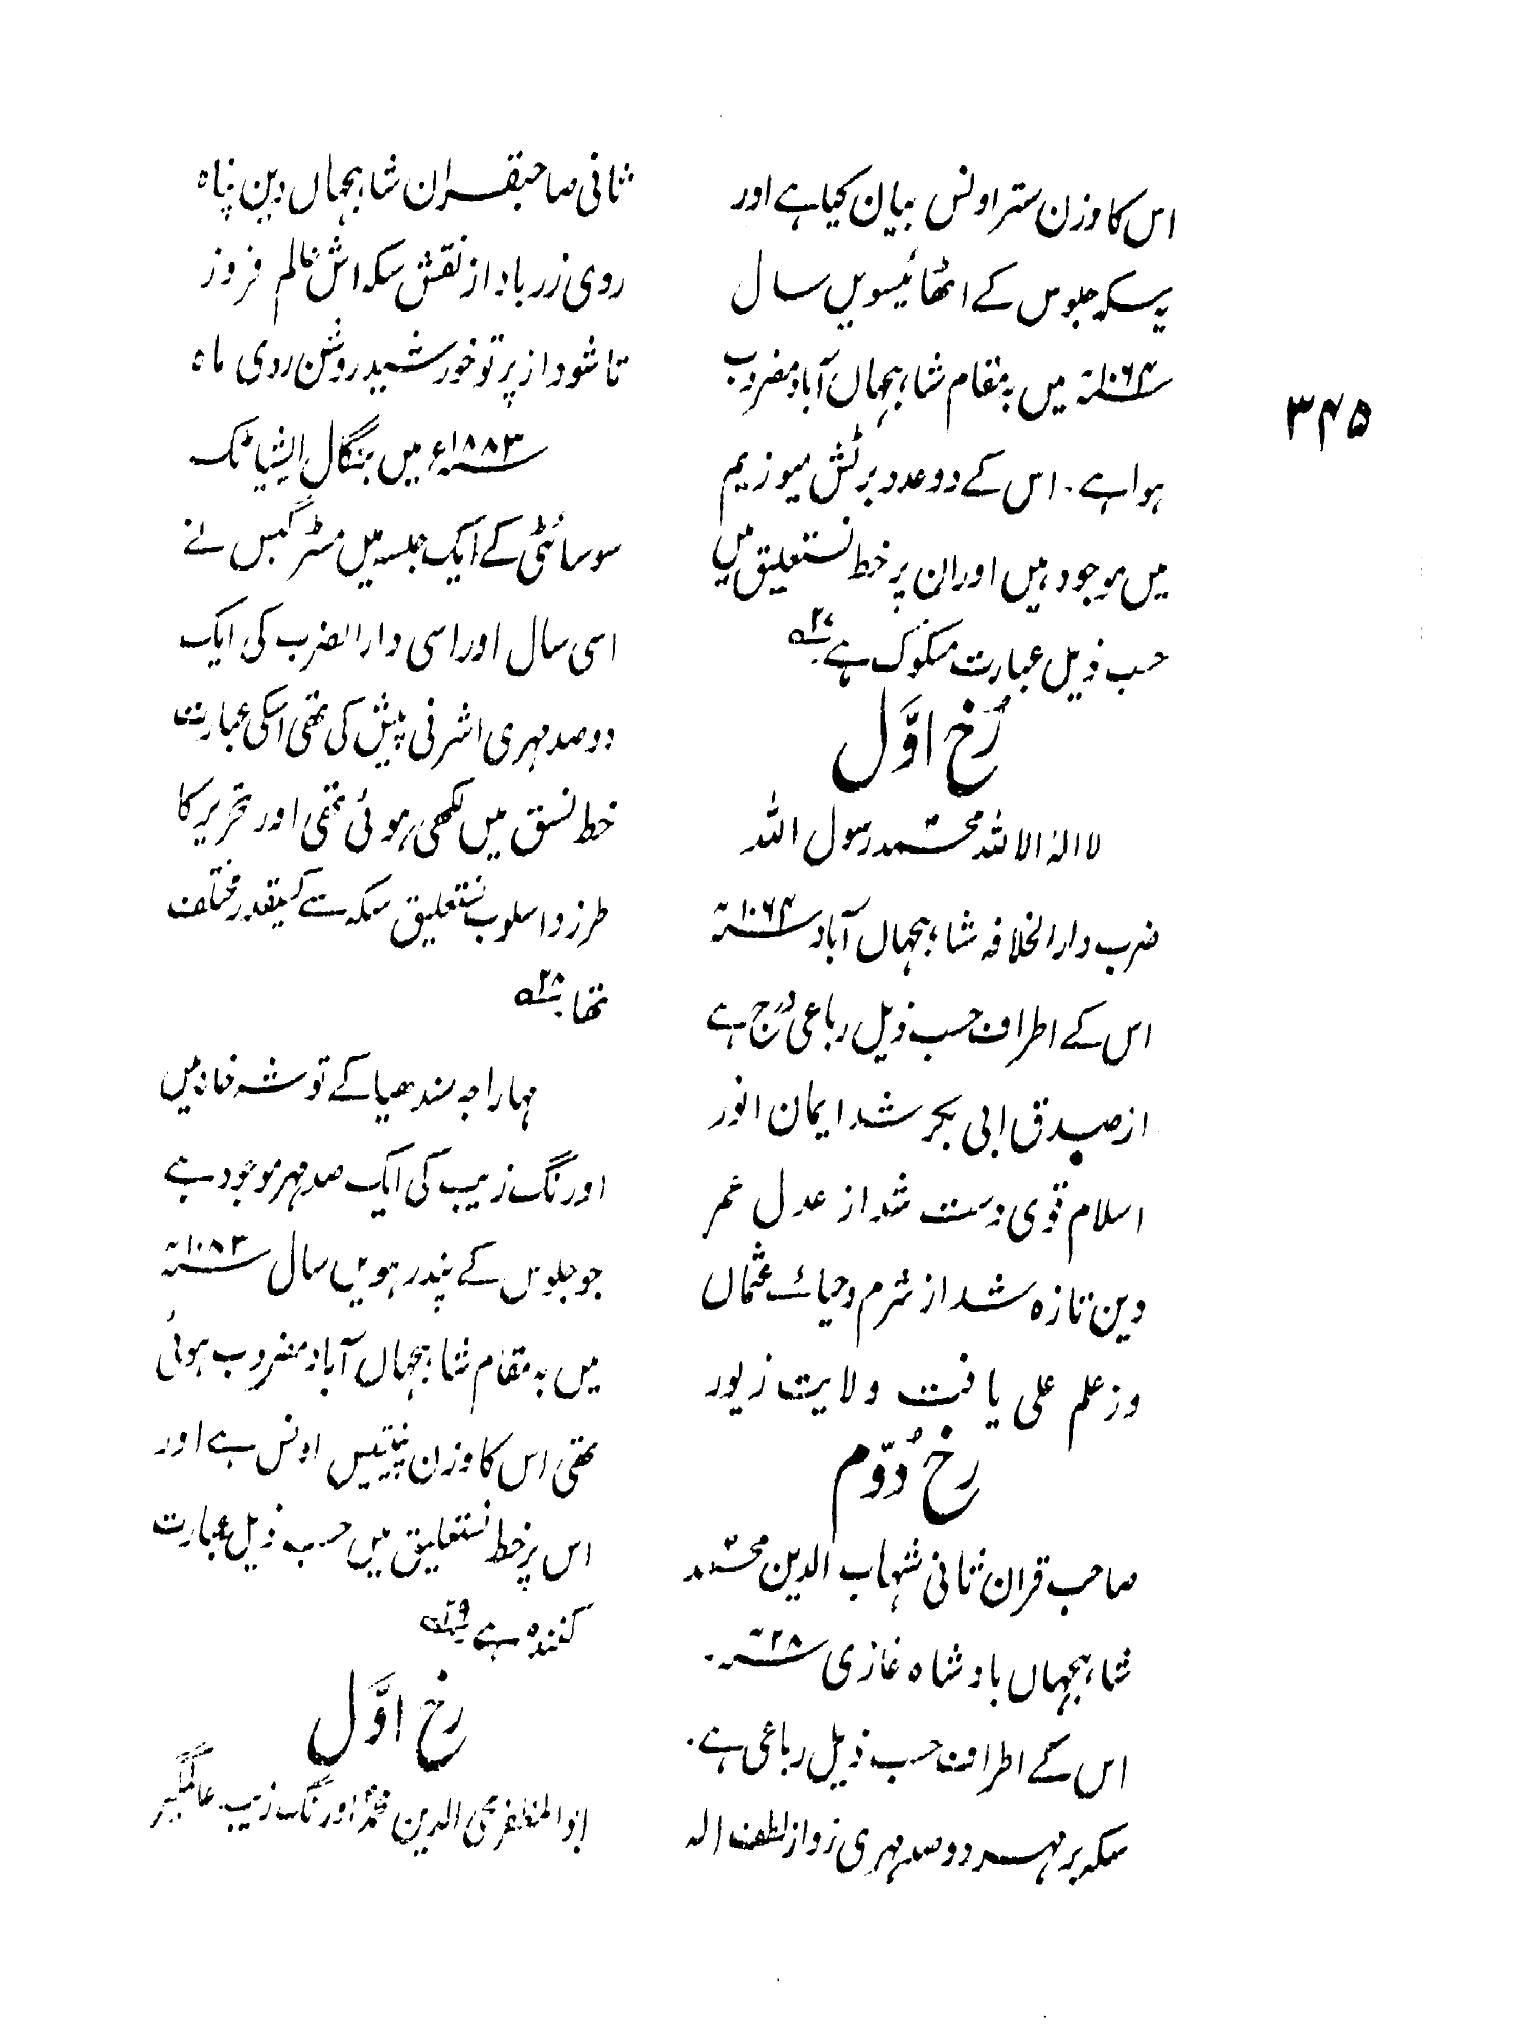 ۳۴۵
اس کا وزن ستر اونس بیان کیا ہے اور
یہ سکہ جلوس کے اٹھائیسویں سال
۱۰۶۴ھ میں بہ مقام شاہجہاں آباد مضروب
ہوا ہے۔ اس کے دو عدد برٹش میوزیم
میں موجود ہیں اور ان پر خط نستعلیق میں
حسب ذیل عبارت مسکوک ہے ۲۷ھ
رُخ اوّل
لا الہ الا للہ محمد رسول اللہ
ضرب دار الخلافہ شاہجہاں آباد ۱۰۶۴ھ
اس کے اطراف حسب ذیل رباعی درج ہے
از صدق ابی بکر شد ایمان انور
اسلام قوی دست شد از عدل عمر
دین تازہ شد از شرم و حیائے عثماں
وز علم علی یافت ولایت زیور
رخ دُوّم
صاحب قران ثانی شہاب الدین محمد
شاہجہاں بادشاہ غازی ۲۸؁ ۔
اس کے اطراف حسب ذیل رباعی ہے۔
سکہ بر مہر دو صد مہری زد از لطف الہ
ثانی صاحبقران شاہجہاں دین پناہ
روی زر باد از نقش سکہ اش عالم فروز
تا شود از پرتو خورشید روشن روی ماہ
۱۸۸۳ء میں بنگال ایشیاٹک
سوسائٹی کے ایک جلسہ میں مسٹر گبس نے
اسی سال اور اسی دار الضرب کی ایک
دو صد مہری اشرفی پیش کی تھی اسکی عبارت
خط نسق میں لکھی ہوئی تھی اور تحریر کا
طرز و اسلوب نستعلیق سکہ سے کسیقدر مختلف
تھا ۲۸ھ
مہاراجہ سندھیا کے توشہ خانہ میں
اورنگ زیب کی ایک صد مہر موجود ہے
جو جلوس کے پندرہویں سال ۱۰۸۳ھ
میں بہ مقام شاہجہاں آباد مضروب ہوئی
تھی اس کا وزن پینتیس اونس ہے اور
اس پر خط نستعلیق میں حسب ذیل عبارت
کنندہ ہے ۲۹ھ
رخ اوّل
ابو المظفر محی الدین محمدؐ اورنگ زیب عالمگیر